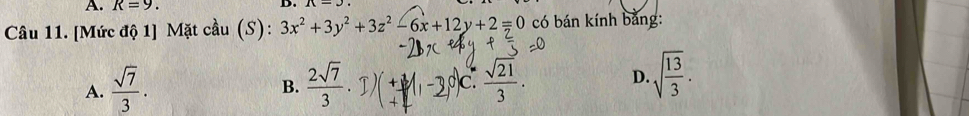 A. R = 9.
Câu 11. [Mức độ 1] Mặt cầu (S): 3x² + 3y² + 3z² − 6x + 12y + 2 = 0 có bán kính bằng:
-2x +4y + 2/3 = 0
A. √7/3 . B. 2√7/3 . I (1, -2, 0) C. √21/3 . D. √(13/3) .